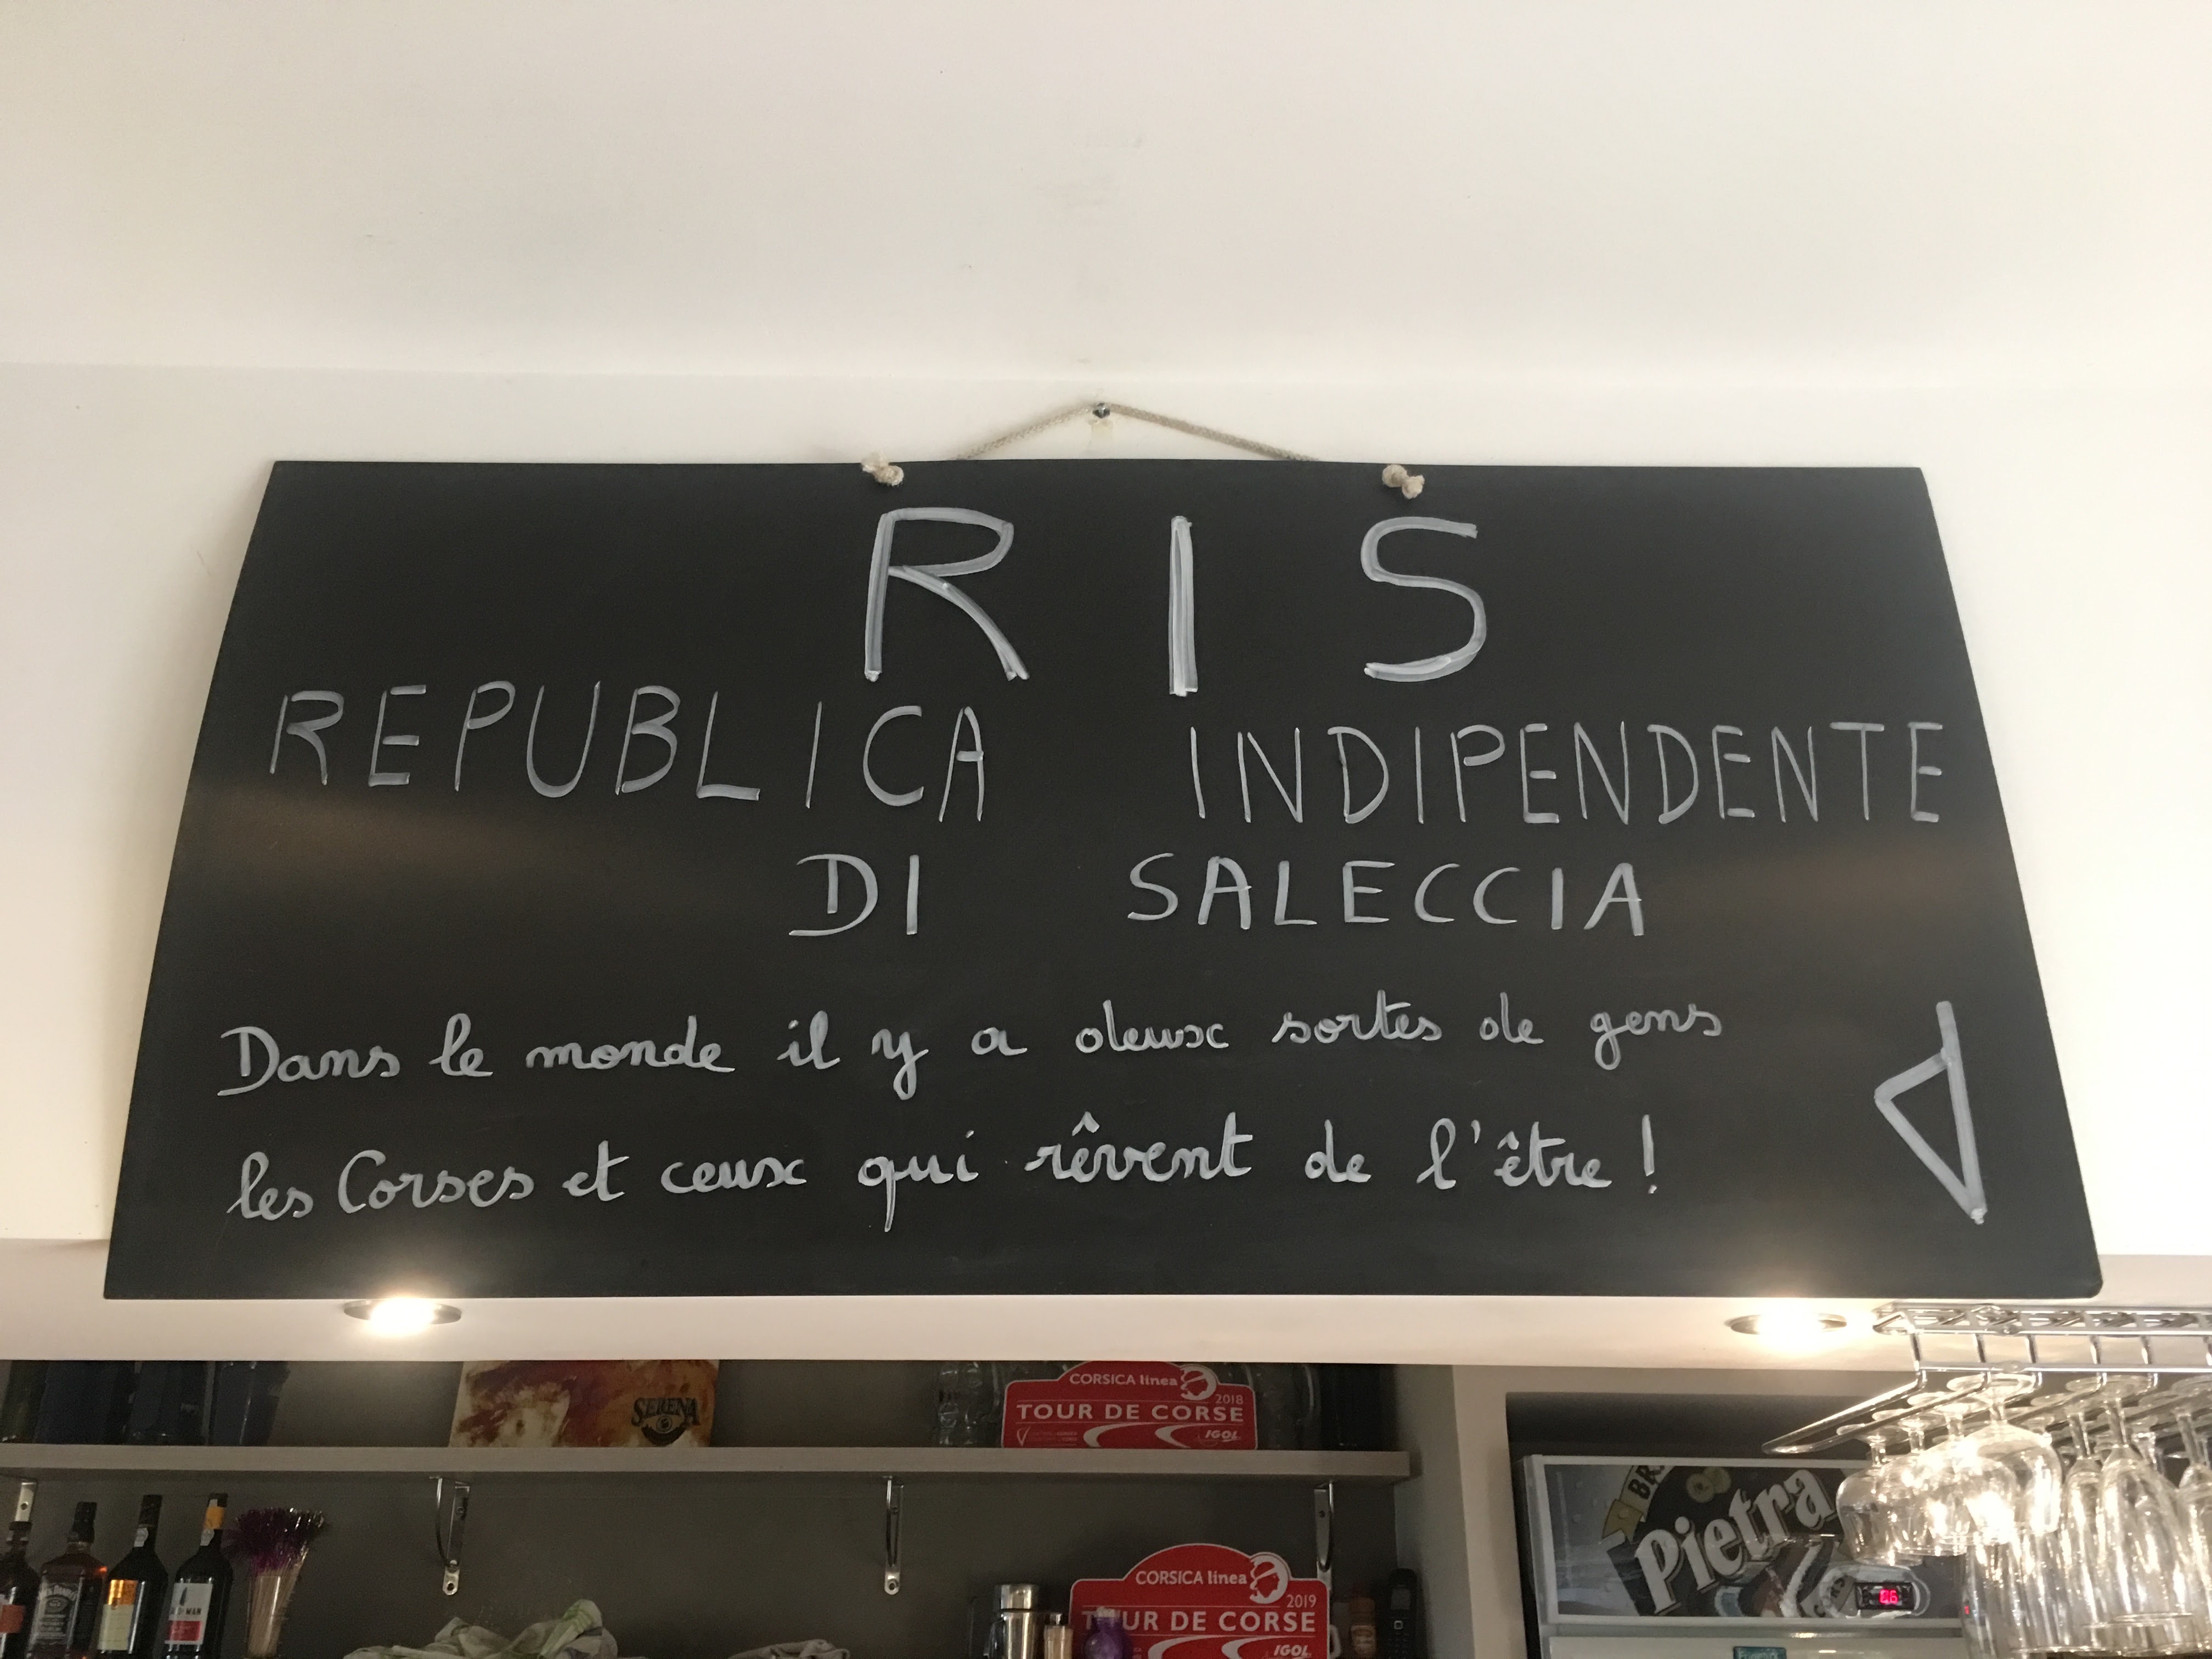 R I S
REPUBLICA INDIPENDENTE
DI SALECCIA
Dans le monde il y a deux sortes de gens
les Corses et ceux qui rêvent de l'être !
SERENA
CORSICA linea
2018
TOUR DE CORSE
IGOL
Pietra
CORSICA linea
2019
TOUR DE CORSE
IGOL